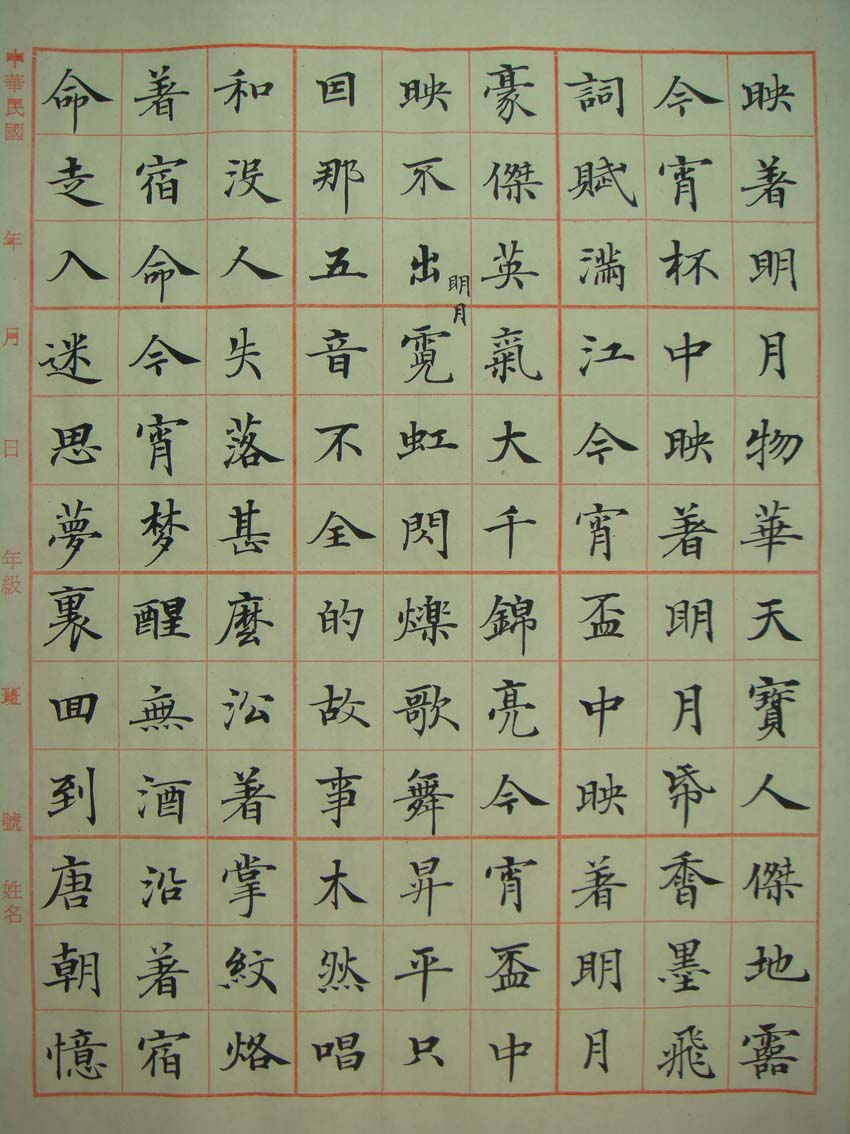 映著明月物華天寶人傑地靈
今宵杯中映著明月帋香墨飛
詞賦滿江今宵盃中映著明月
豪傑英氣大千錦亮今宵盃中
映不出明月霓虹閃爍歌舞昇平只
囙那五音不全的故事木然唱
和没人失落甚麼㳂著掌紋烙
著宿命今宵梦醒無酒沿著宿
命走入迷思夢裏囬到唐朝憶
中華民國 年 月 日 年級 班 號 姓名